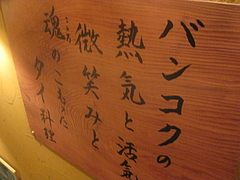 バンコクの
熱気と活気
微笑みと
魂のこもった
タイ料理